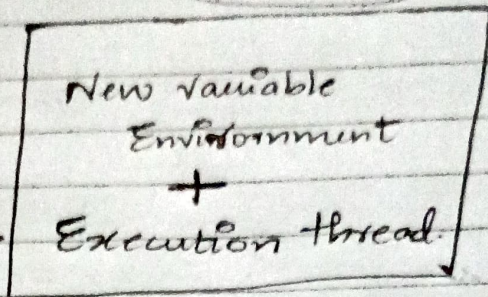 New variable
Environment
+
Execution thread.